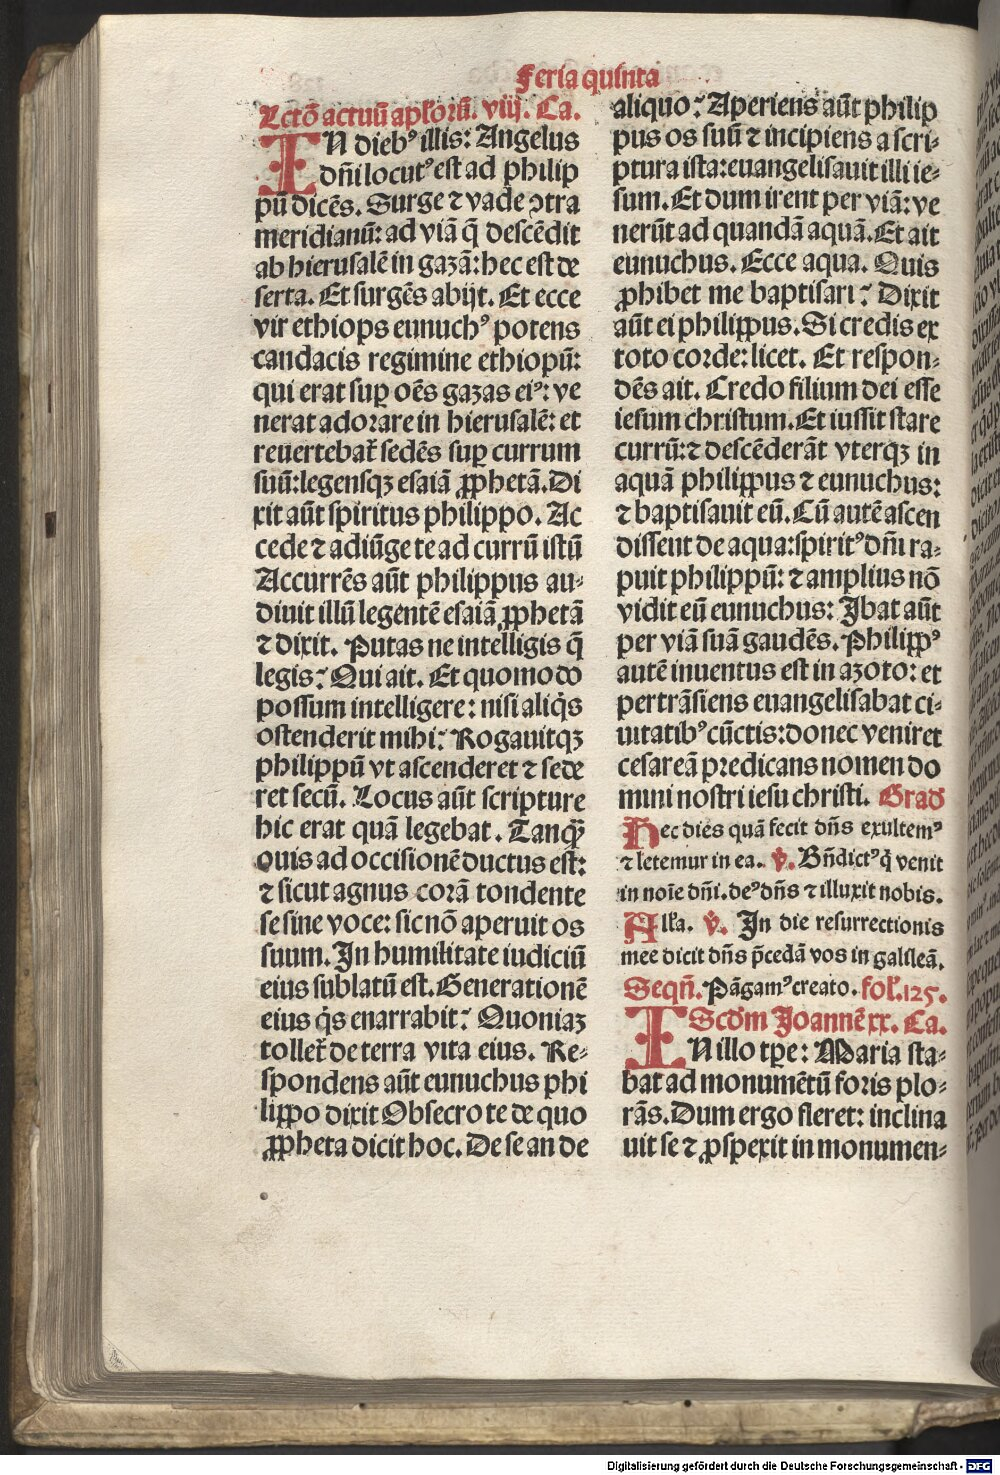 Feria quinta
Lctō actuū apl'orū. viij. Ca.
IN diebꝰ illis: Angelus
dn̄i locutꝰ est ad philip
pū dicēs. Surge ⁊ vade ꝯtra
meridianū: ad viā q̄ descēdit
ab hierusalē in gazā: hec est de
serta. Et surgēs abijt. Et ecce
vir ethiops eunuchꝰ potens
candacis regimine ethiopū:
qui erat suꝑ oēs gazas eiꝰ: ve
nerat adorare in hierusalē: et
reuertebat᷑ sedēs suꝑ currum
suū: legensqꝫ esaiā ꝓphetā. Di
xit aūt spiritus philippo. Ac
cede ⁊ adiūge te ad currū istū
Accurrēs aūt philippus au⸗
diuit illū legentē esaiā ꝓphetā
⁊ dixit. Putas ne intelligis q̄
legis? Qui ait. Et quomodo
possum intelligere: nisi aliq̇s
ostenderit mihi? Rogauitqꝫ
philippū vt ascenderet ⁊ sede
ret secū. Locus aūt scripture
hic erat quā legebat. Tanq̄ꝫ
ouis ad occisionē ductus est:
⁊ sicut agnus corā tondente
se sine voce: sic nō aperuit os
suum. In humilitate iudiciū
eius sublatū est. Generationē
eius q̇s enarrabit? Quoniaꝫ
tollet᷑ de terra vita eius. Re⸗
spondens aūt eunuchus phi
lippo dixit Obsecro te de quo
ꝓpheta dicit hoc. De se an de
aliquo? Aperiens aūt philip
pus os suū ⁊ incipiens a scri⸗
ptura ista: euangelisauit illi ie⸗
sum. Et dum irent per viā: ve
nerūt ad quandā aquā. Et ait
eunuchus. Ecce aqua. Quis
ꝓhibet me baptisari? Dixit
aūt ei philippus. Si credis ex
toto corde: licet. Et respon⸗
dēs ait. Credo filium dei esse
iesum christum. Et iussit stare
currū: ⁊ descēderāt vterqꝫ in
aquā philippus ⁊ eunuchus:
⁊ baptisauit eū. Cū autē ascen
dissent de aqua: spiritꝰ dn̄i ra⸗
puit philippū: ⁊ amplius nō
vidit eū eunuchus: Ibat aūt
per viā suā gaudēs. Philippꝰ
autē inuentus est in azoto: et
pertrāsiens euangelisabat ci⸗
uitatibꝰ cūctis: donec veniret
cesareā predicans nomen do
mini nostri iesu christi. Grad
Hec dies quā fecit dn̄s exultemꝰ
⁊ letemur in ea. ℣. Bn̄dictꝰ q̇ venit
in noīe dn̄i. deꝰ dn̄s ⁊ illuxit nobis.
All'a. ℣. In die resurrectionis
mee dicit dn̄s p̄cedā vos in galileā.
Seqn̄. Pāgamꝰ creato. fol'.125.
Scd̄m Joannē xx. Ca.
IN illo tp̄e: Maria sta⸗
bat ad monumētū foris plo⸗
rās. Dum ergo fleret: inclina
uit se ⁊ ꝓspexit in monumen⸗
Digitalisierung gefördert durch die Deutsche Forschungsgemeinschaft - DFG